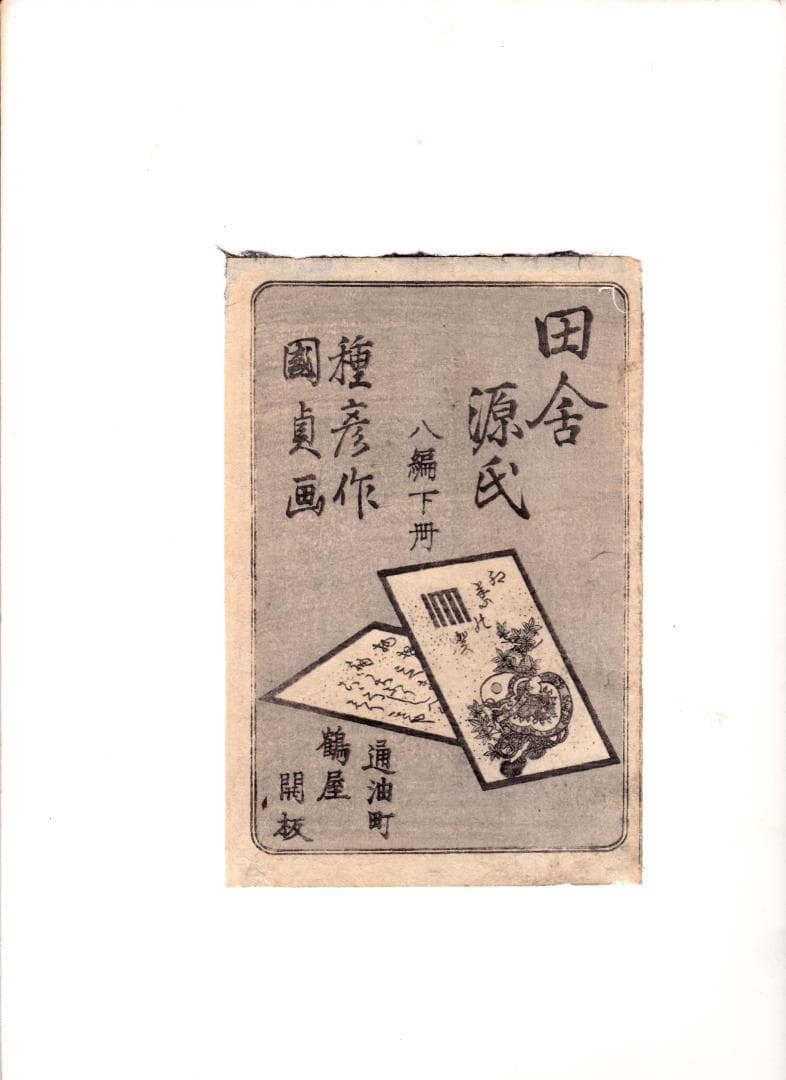 田舎
源氏
八編下冊
種彦作
國貞画
紅葉の賀
通油町
鶴屋
開板